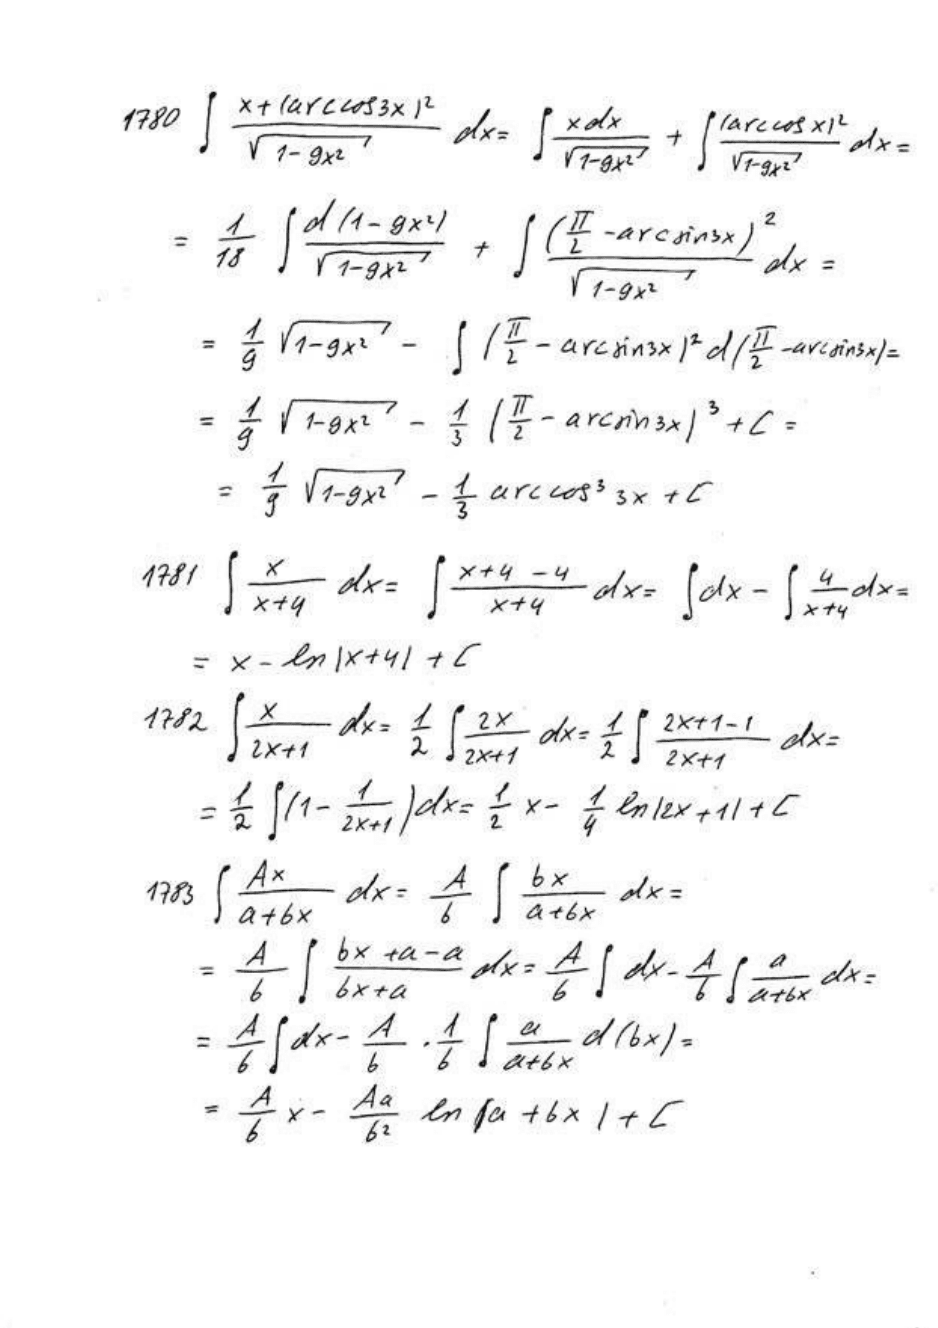 1780 ∫ (x+(arccos3x)²)/√(1-9x²) dx = ∫ xdx/√(1-9x²) + ∫ (arccos x)²/√(1-9x²) dx =
= 1/18 ∫ d(1-9x²)/√(1-9x²) + ∫ (π/2 - arcsin3x)²/√(1-9x²) dx =
= 1/9 √(1-9x²) - ∫ (π/2 - arcsin3x)² d(π/2 - arcsin3x) =
= 1/9 √(1-9x²) - 1/3 (π/2 - arcsin3x)³ + C =
= 1/9 √(1-9x²) - 1/3 arccos³ 3x + C
1781 ∫ x/(x+4) dx = ∫ (x+4-4)/(x+4) dx = ∫ dx - ∫ 4/(x+4) dx =
= x - ln|x+4| + C
1782 ∫ x/(2x+1) dx = 1/2 ∫ 2x/(2x+1) dx = 1/2 ∫ (2x+1-1)/(2x+1) dx =
= 1/2 ∫ (1 - 1/(2x+1)) dx = 1/2 x - 1/4 ln|2x+1| + C
1783 ∫ Ax/(a+bx) dx = A/b ∫ bx/(a+bx) dx =
= A/b ∫ (bx+a-a)/(bx+a) dx = A/b ∫ dx - A/b ∫ a/(a+bx) dx =
= A/b ∫ dx - A/b · 1/b ∫ a/(a+bx) d(bx) =
= A/b x - Aa/b² ln|a+bx| + C